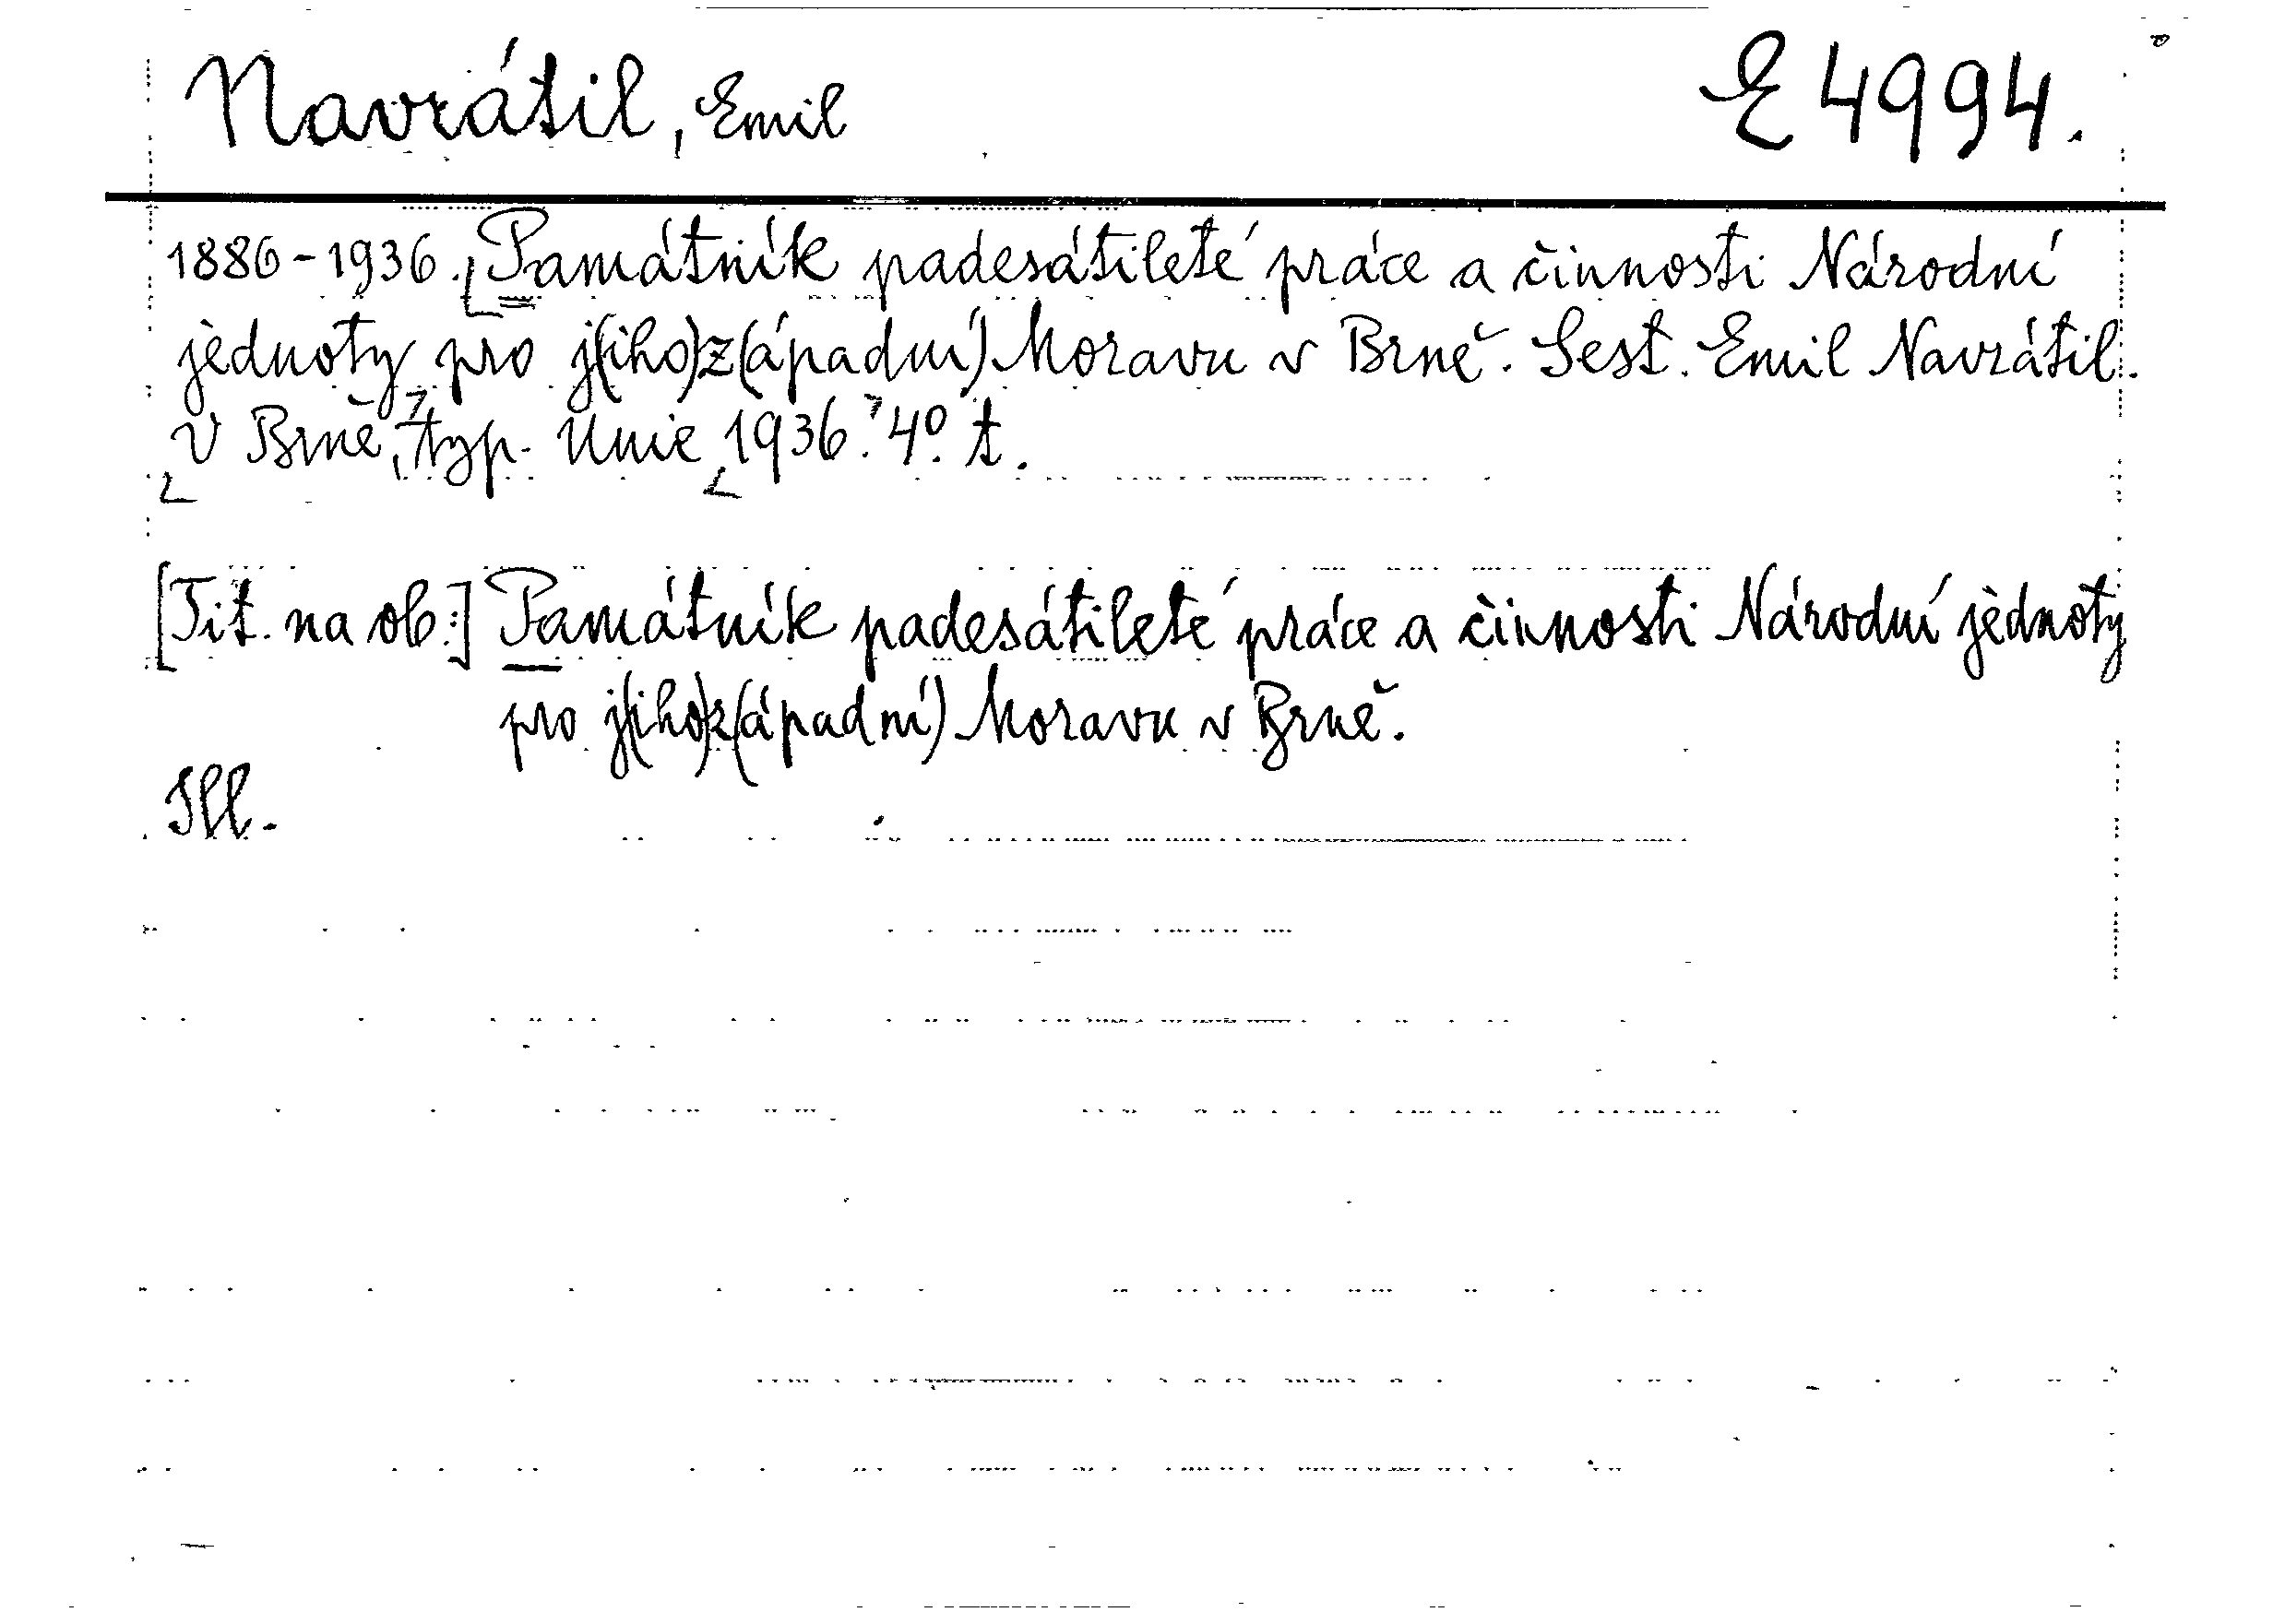 Navrátil, Emil E 4994.
1886-1936. Památník padesátileté práce a činnosti Národní
jednoty pro j(iho)z(ápadní) Moravu v Brně. Sest. Emil Navrátil.
V Brně, typ. Unie 1936. 4°. t.
[Tit. na ob.:] Památník padesátileté práce a činnosti Národní jednoty
pro j(iho)z(ápadní) Moravu v Brně.
Ill.